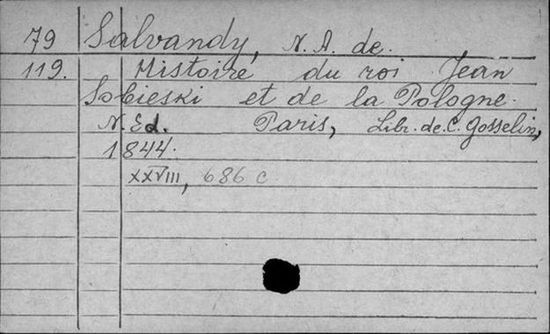 79 Salvandy, N. A. de.
119. Histoire du roi Jean
Sobieski et de la Pologne.
N. Ed. Paris, Libr. de. C. Gosselin,
1844.
XXVIII, 686 c.